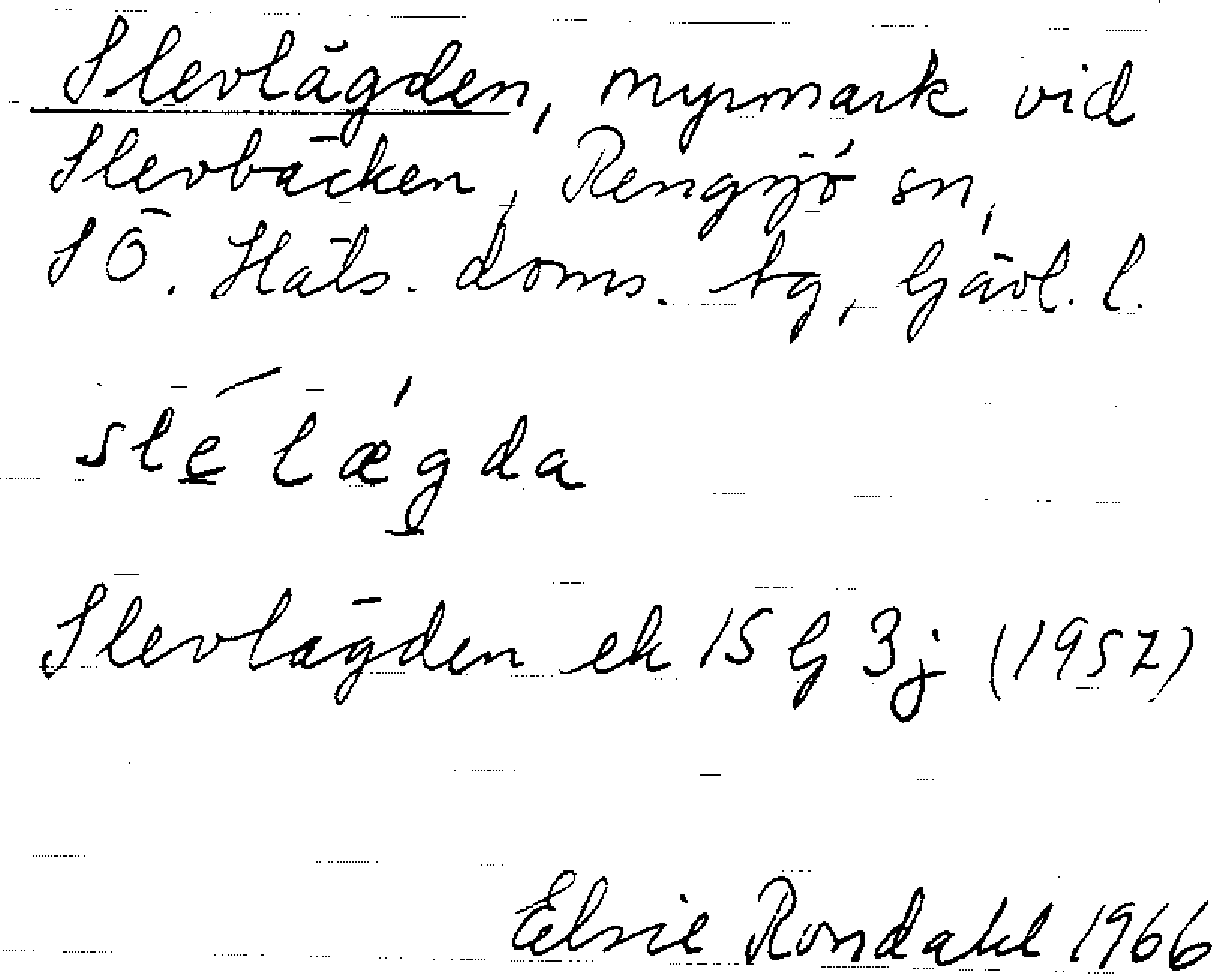 Slevlägden, myrmark vid
Slevbäcken, Rengsjö sn,
SÖ. Häls. doms. tg, Gävl. l.
slè lǽgda
Slevlägden ek 15 G 3j (1957)
Elsie Rondahl 1966